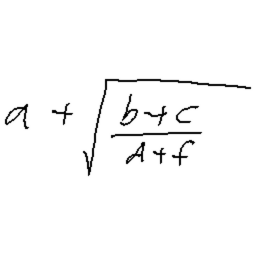 a + √((b+c)/(A+f))